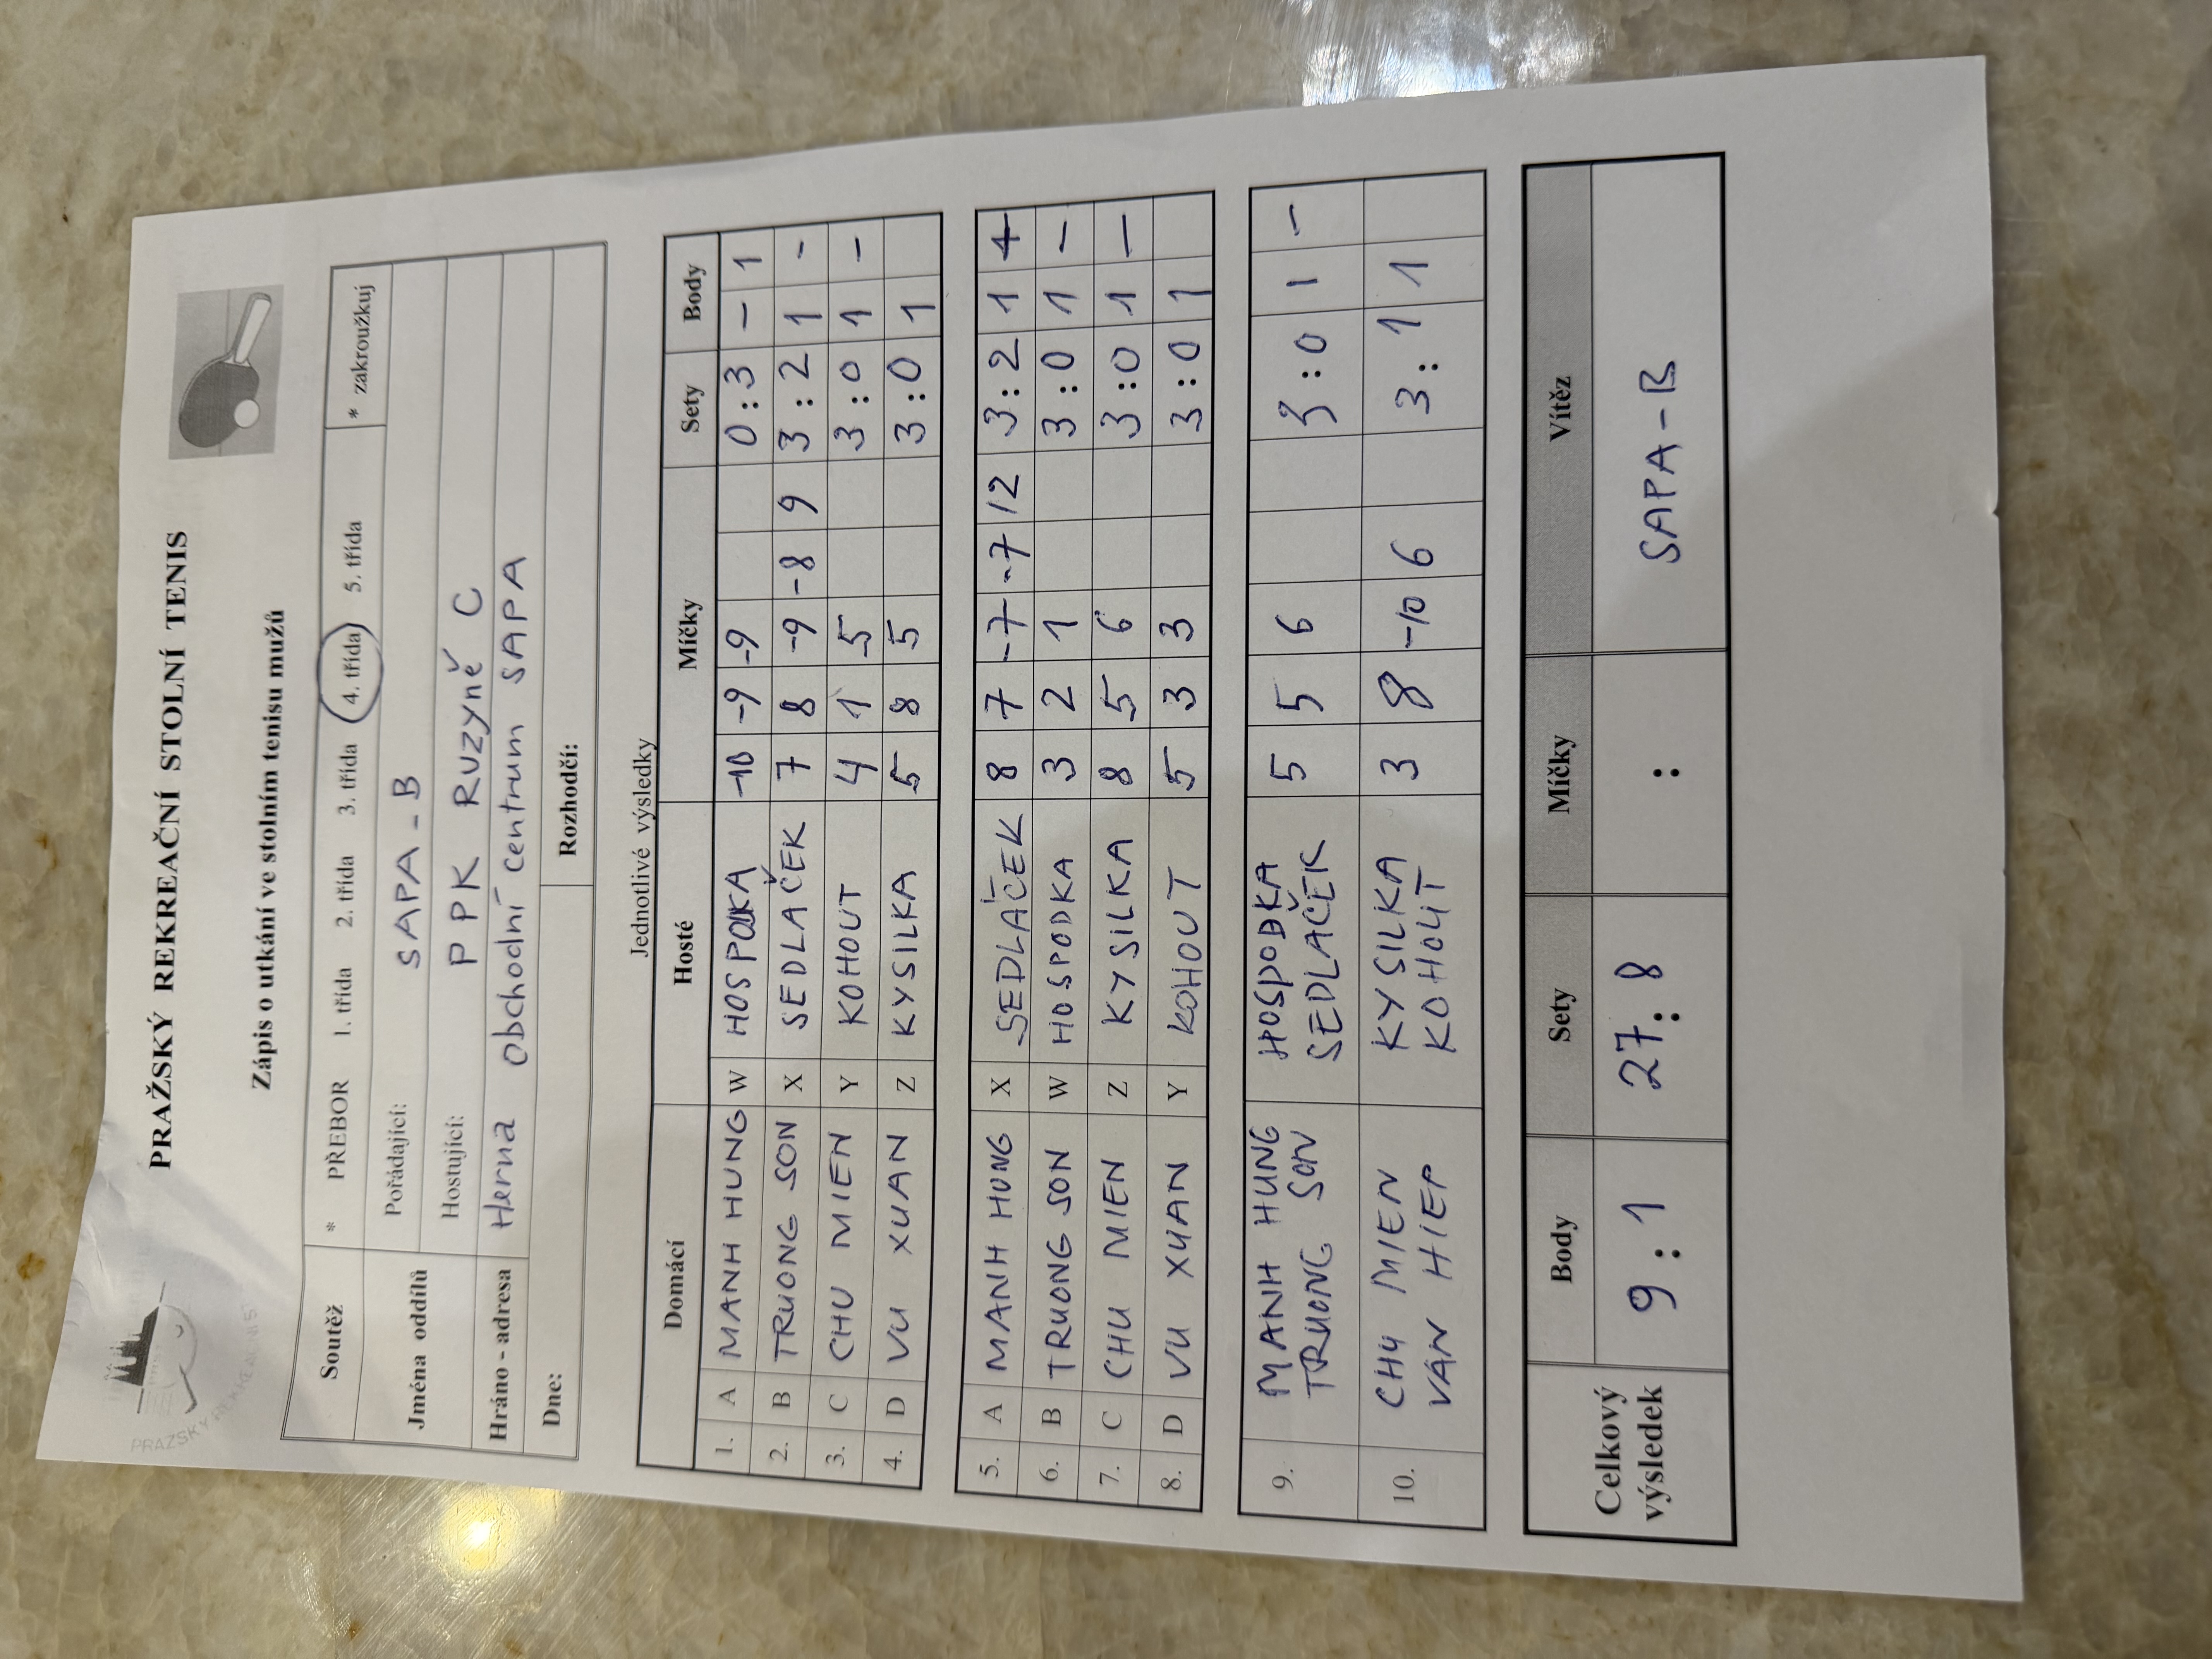 PRAŽSKÝ REKREAČNÍ STOLNÍ TENIS
Zápis o utkání ve stolním tenisu mužů
Soutěž * PŘEBOR 1. třída 2. třída 3. třída 4. třída 5. třída * zakroužkuj
Jména oddílů Pořádající: SAPA-B
Hostující: PPK Ruzyně C
Hráno - adresa Herna obchodní centrum SAPA
Dne: Rozhodčí:
Jednotlivé výsledky
Domácí Hosté Míčky Sety Body
1. A MANH HUNG W HOSPODKA -10 -9 -9 0:3 - 1
2. B TRUONG SON X SEDLAČEK 7 8 -9 -8 9 3:2 1 -
3. C CHU MIEN Y KOHOUT 4 1 5 3:0 1 -
4. D VU XUAN Z KYSILKA 5 8 5 3:0 1
5. A MANH HUNG X SEDLAČEK 8 7 -7 -7 12 3:2 1
6. B TRUONG SON W HOSPODKA 3 2 1 3:0 1 -
7. C CHU MIEN Z KYSILKA 8 5 6 3:0 1 -
8. D VU XUAN Y KOHOUT 5 3 3 3:0 1
9. MANH HUNG HOSPODKA 5 5 6 3:0 1 -
TRUONG SON SEDLAČEK
10. CHU MIEN KYSILKA 3 8 -10 6 3:1 1
VAN HIEP KOHOUT
Celkový výsledek Body Sety Míčky Vítěz
9:1 27:8 : SAPA-B